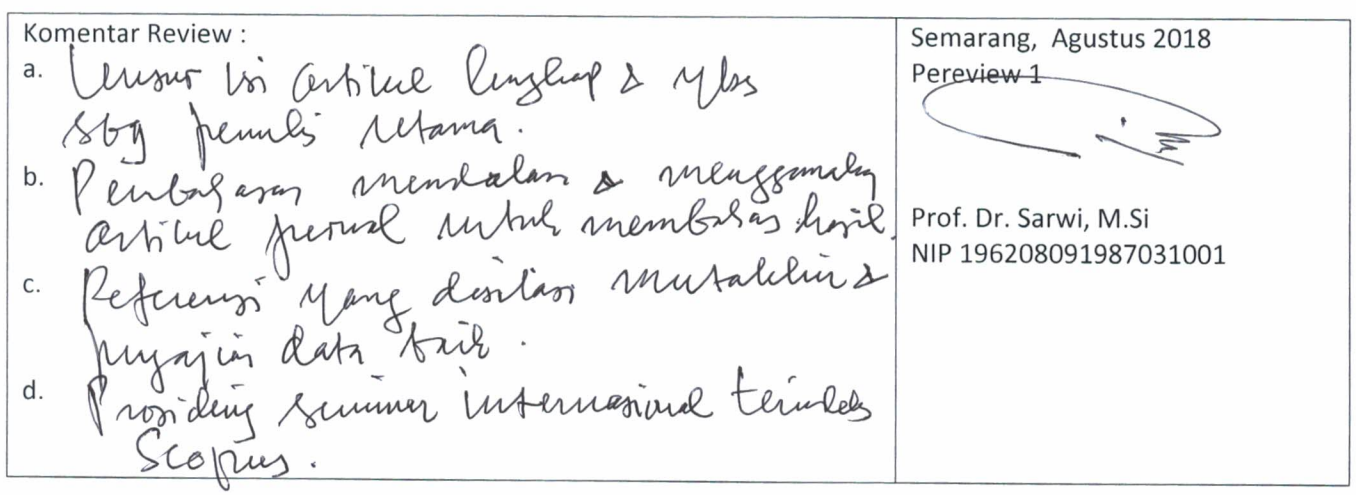 Komentar Review :
a. Unsur isi artikel lengkap & ybs
sbg penulis utama.
b. Pembahasan mendalam & menggunakan
artikel jurnal untuk membahas hasil.
c. Referensi yang disitasi mutakhir &
penyajian data baik.
d. Prosiding seminar internasional terindeks
Scopus.
Semarang, Agustus 2018
Pereview 1
Prof. Dr. Sarwi, M.Si
NIP 196208091987031001